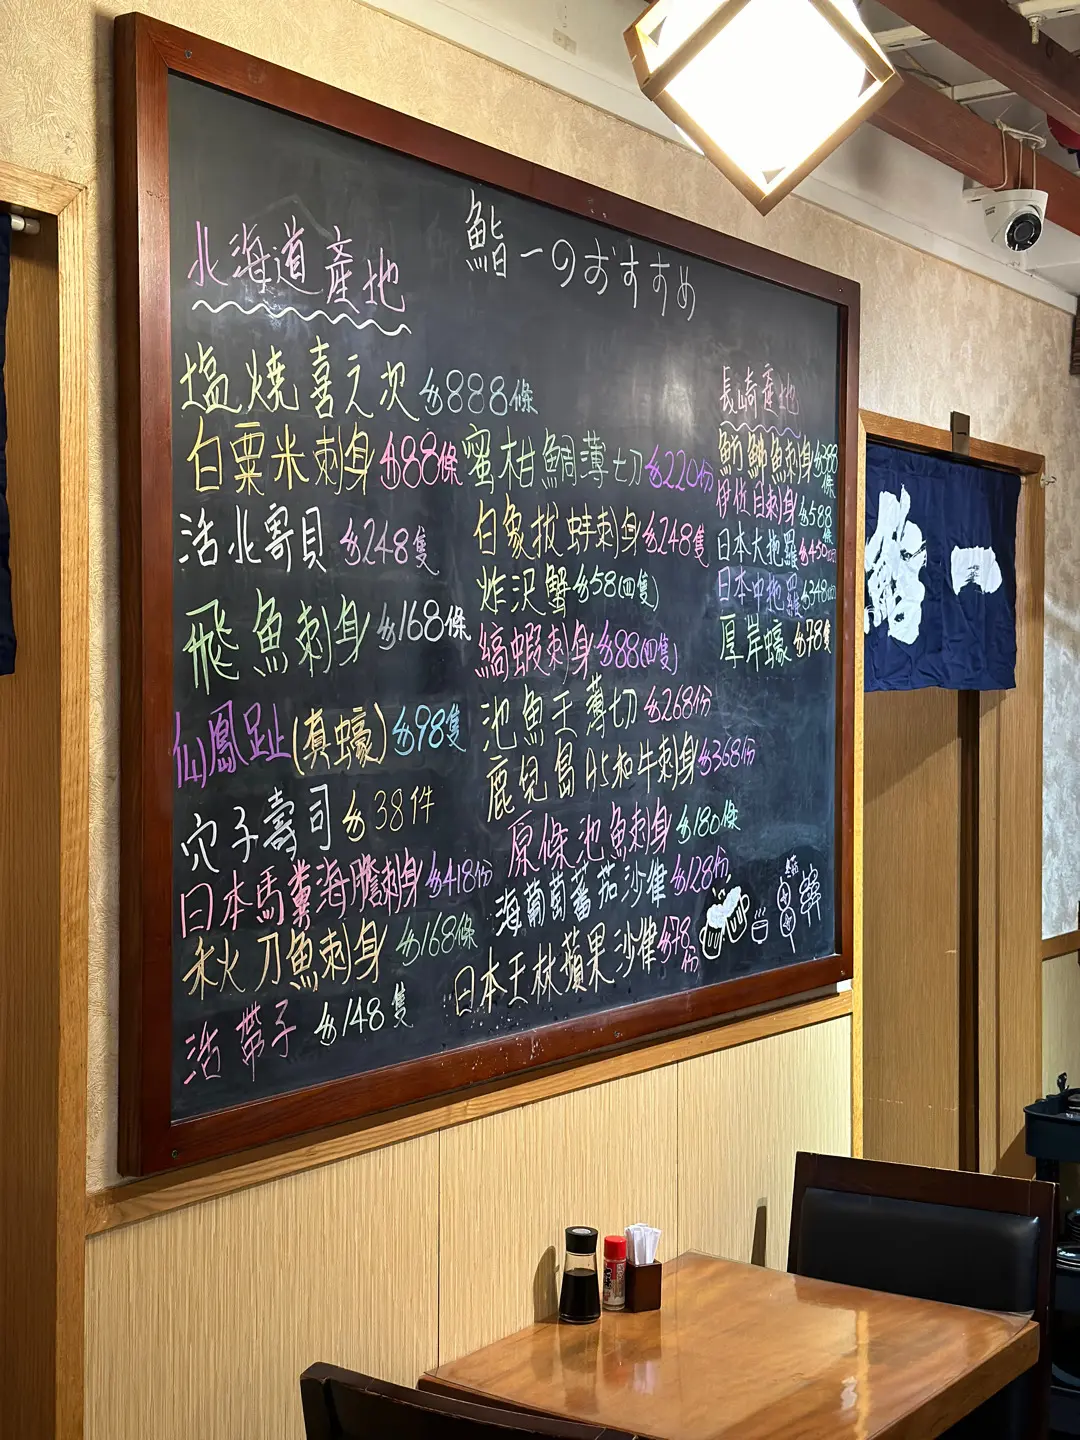 鮨一のおすすめ
北海道產地
塩燒喜之次 $888條
白粟米刺身 $88條
活北寄貝 $248隻
飛魚刺身 $168條
仙鳳趾(真蠔) $98隻
穴子壽司 $38件
日本馬糞海膽刺身 $418份
秋刀魚刺身 $168條
活帶子 $148隻
蜜柑鯛薄切 $220份
白象拔蚌刺身 $248隻
炸沢蟹 $58(四隻)
縞蝦刺身 $88(四隻)
池魚王薄切 $268份
鹿兒島A5和牛刺身 $368份
原條池魚刺身 $180條
海葡萄蕃茄沙律 $128份
日本王林蘋果沙律 $78份
長崎產地
魴鮄魚刺身 $388條
伊佐目刺身 $588條
日本大拖羅 $450
日本中拖羅 $348
厚岸蠔 $78隻
串
鮨一